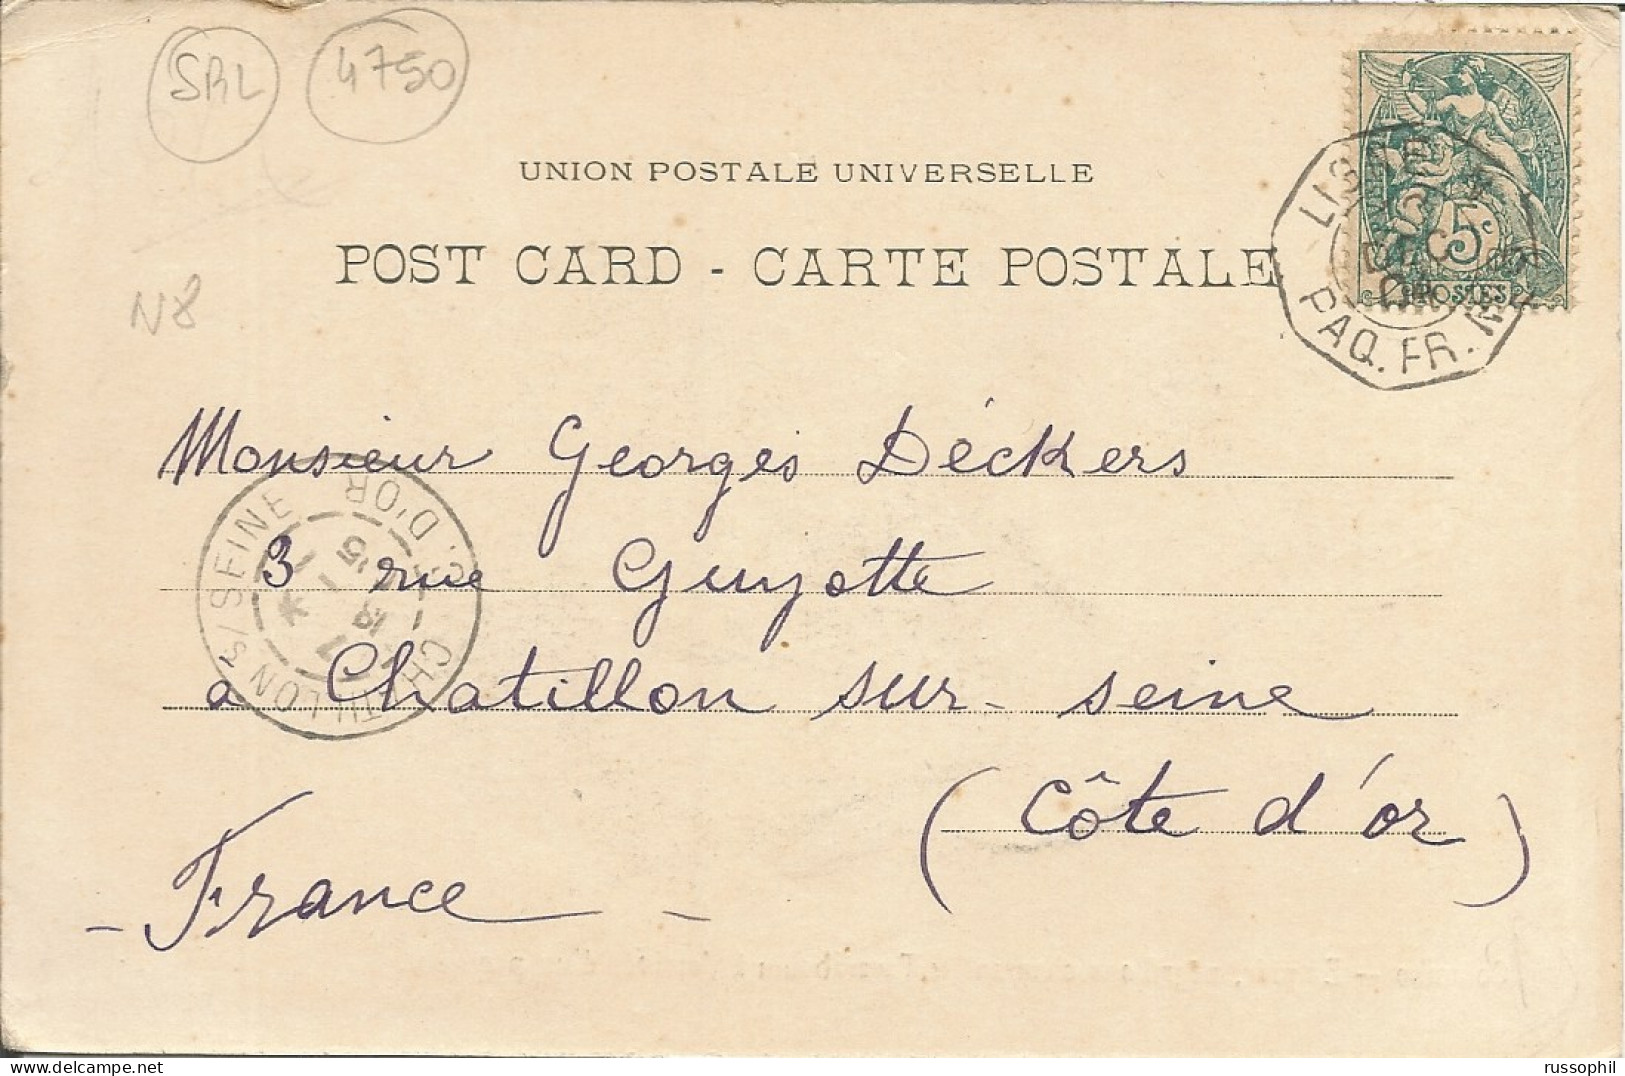 SRL 4750
UNION POSTALE UNIVERSELLE
POST CARD - CARTE POSTALE
N8
LIGNE
DEC
PAQ. FR.
5c
POSTES
Monsieur Georges Déckers
3 rue Guyotte
a Chatillon sur-seine
(Côte d'or)
- France -
CHATILLON S/ SEINE
D'OR
russophil